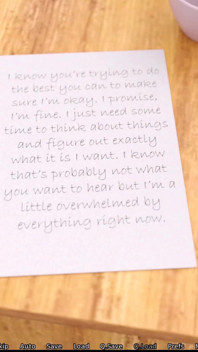 I know you're trying to do
the best you can to make
sure I'm okay. I promise,
I'm fine. I just need some
time to think about things
and figure out exactly
what it is I want. I know
that's probably not what
you want to hear but I'm a
little overwhelmed by
everything right now.
Skip Auto Save Load Q.Save Q.Load Prefs